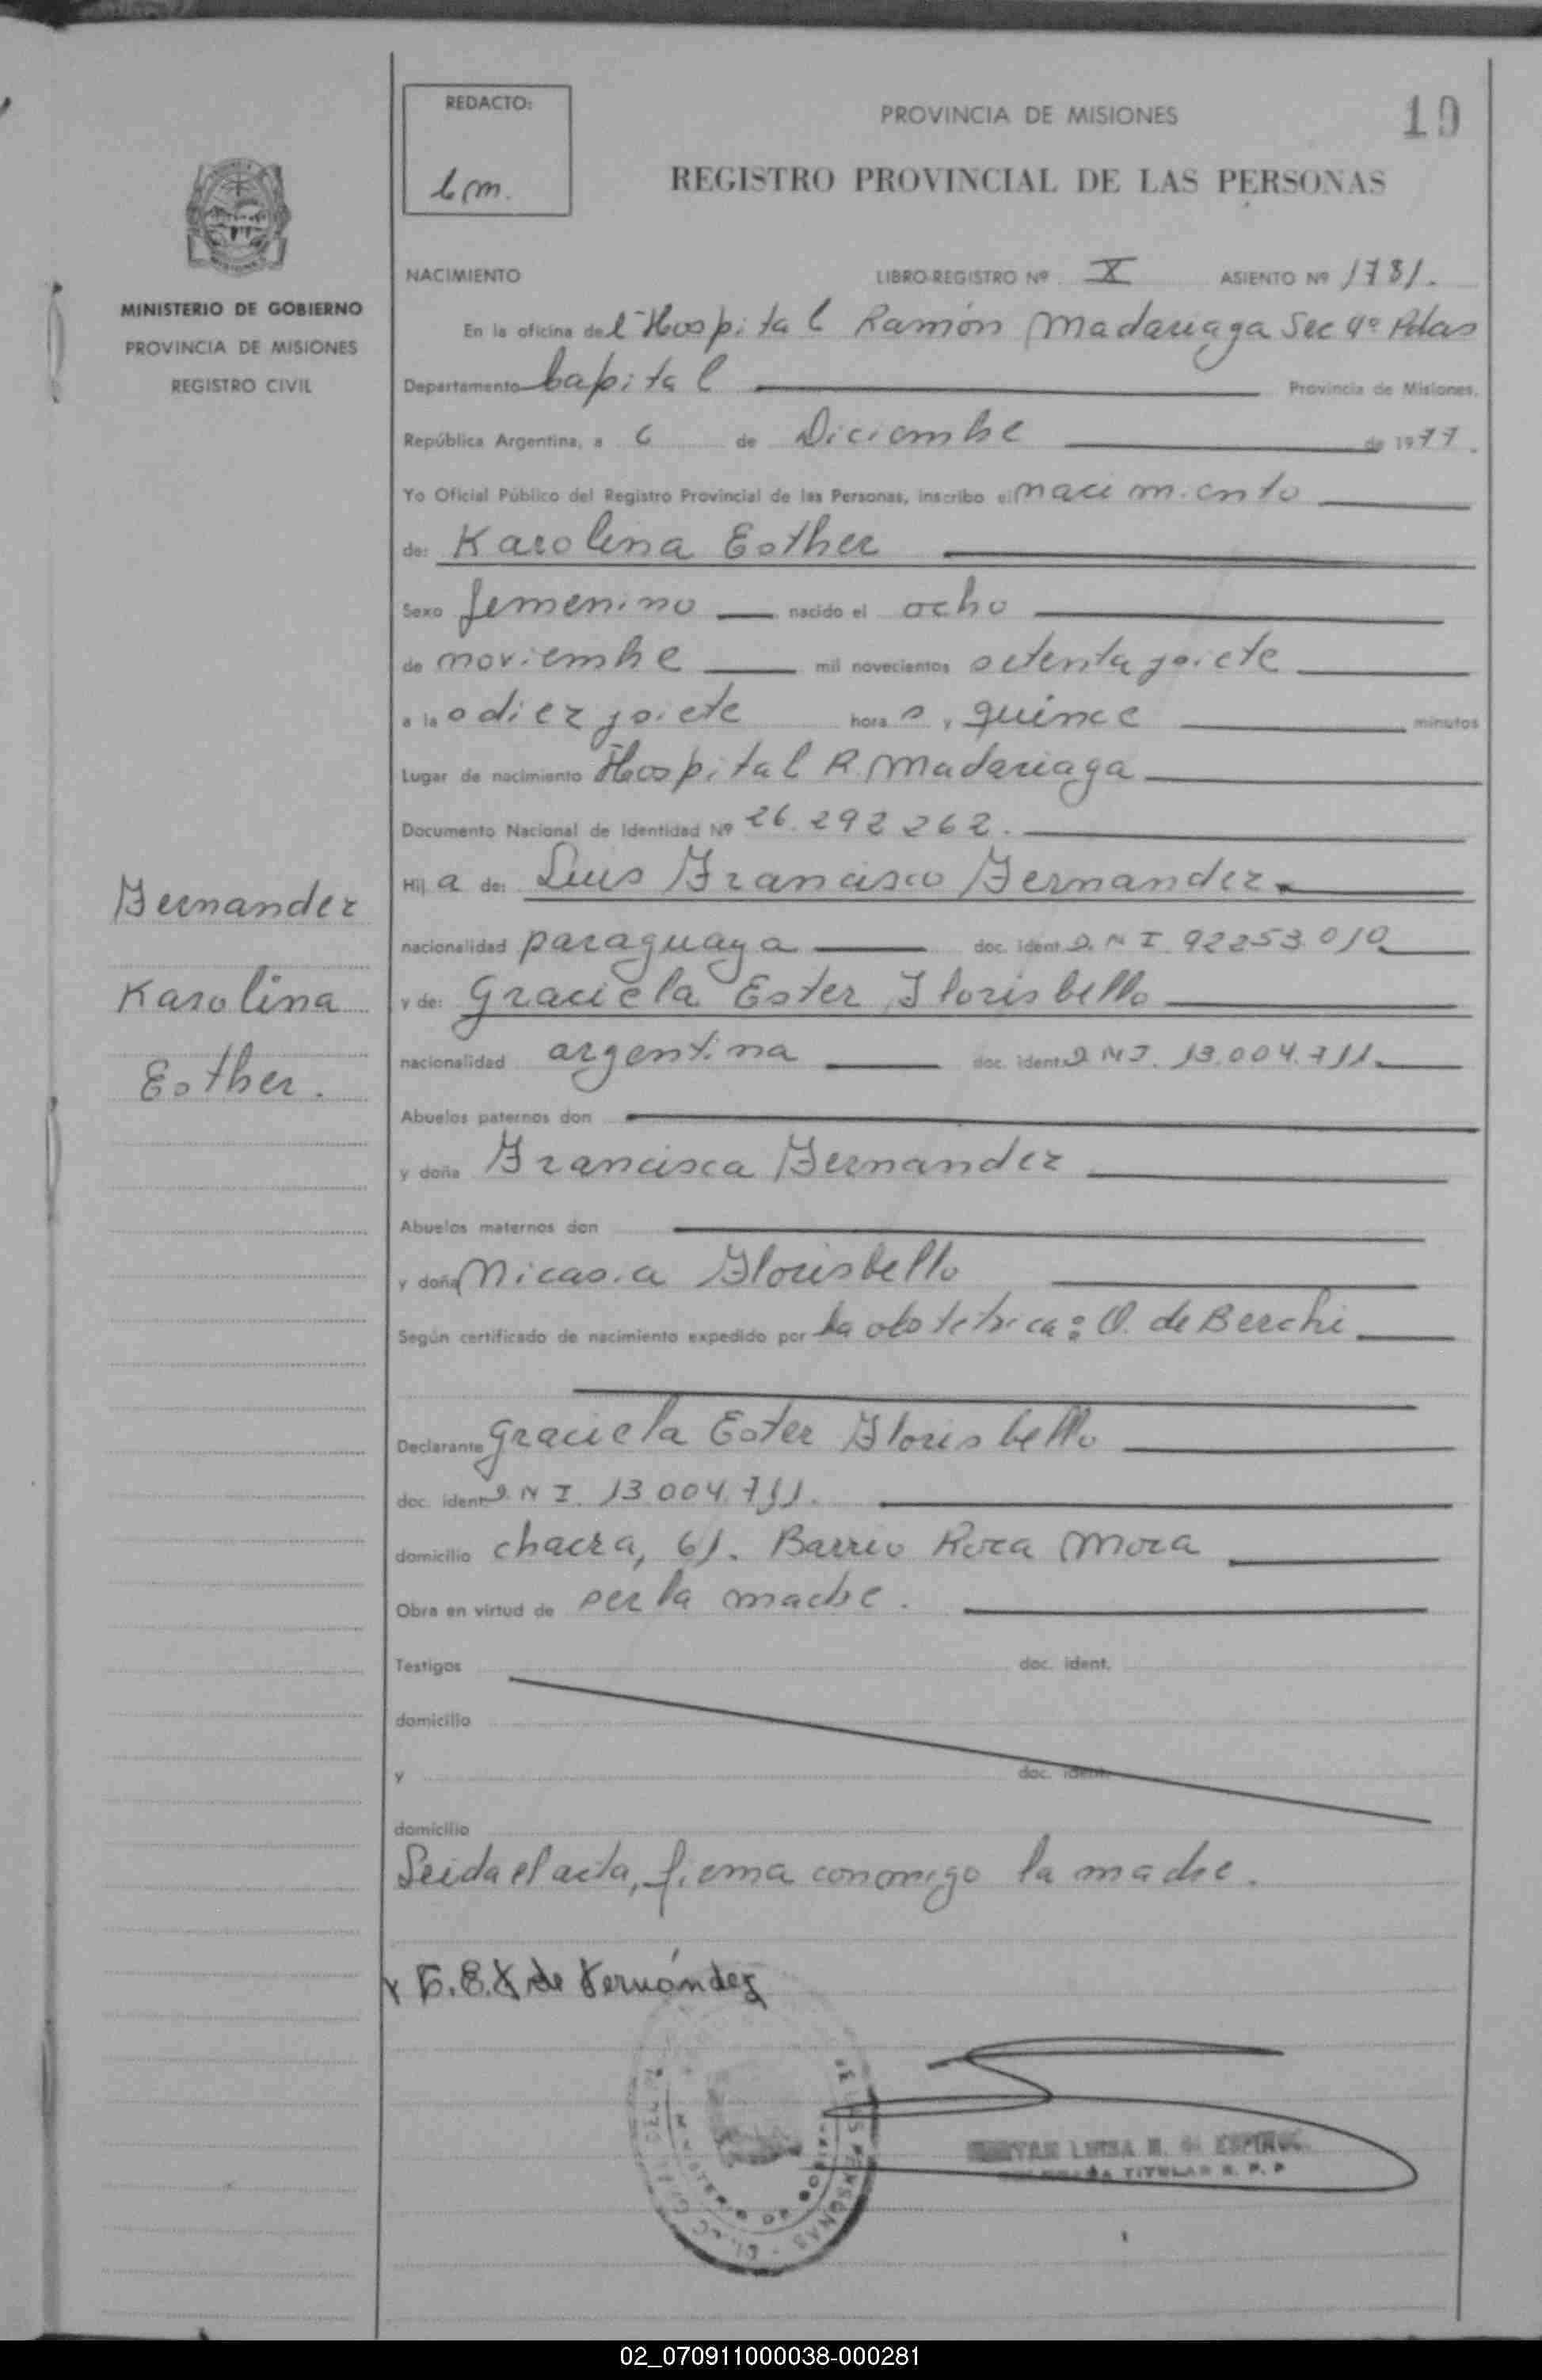 REDACTO:
PROVINCIA DE MISIONES
19
REGISTRO PROVINCIAL DE LAS PERSONAS
NACIMIENTO LIBRO-REGISTRO Nº X ASIENTO Nº 1781.
MINISTERIO DE GOBIERNO
PROVINCIA DE MISIONES
REGISTRO CIVIL
En la oficina del Hospital Ramón Madariaga Sec 4º Pdas
Departamento Capital Provincia de Misiones.
República Argentina, a 6 de Diciembre de 1977.
Yo Oficial Público del Registro Provincial de las Personas, inscribo el nacimiento
de: Karolina Esther
Sexo femenino nacido el ocho
de noviembre mil novecientos setenta y siete
a las diez y siete horas y quince minutos
Lugar de nacimiento Hospital R. Madariaga
Documento Nacional de Identidad Nº 26.292.262.
Hija de: Luis Francisco Fernandez
nacionalidad paraguaya doc. ident. D.N.I. 92253.010
y de: Graciela Ester Florisbello
nacionalidad argentina doc. ident. D.N.I. 13.004.711
Fernandez
Karolina
Esther.
Abuelos paternos don
y doña Francisca Fernandez
Abuelos maternos don
y doña Nicasia Florisbello
Según certificado de nacimiento expedido por la obstetrica: O. de Berchi
Declarante Graciela Ester Florisbello
doc. ident. D.N.I. 13.004.711.
domicilio chacra, 61. Barrio Roca Mora
Obra en virtud de ser la madre.
Testigos doc. ident.
domicilio
y doc. ident.
domicilio
Leida el acta, firma conmigo la madre.
G.E.F. de Fernández
LUISA N. de
TITULAR R. P. P
02_070911000038-000281